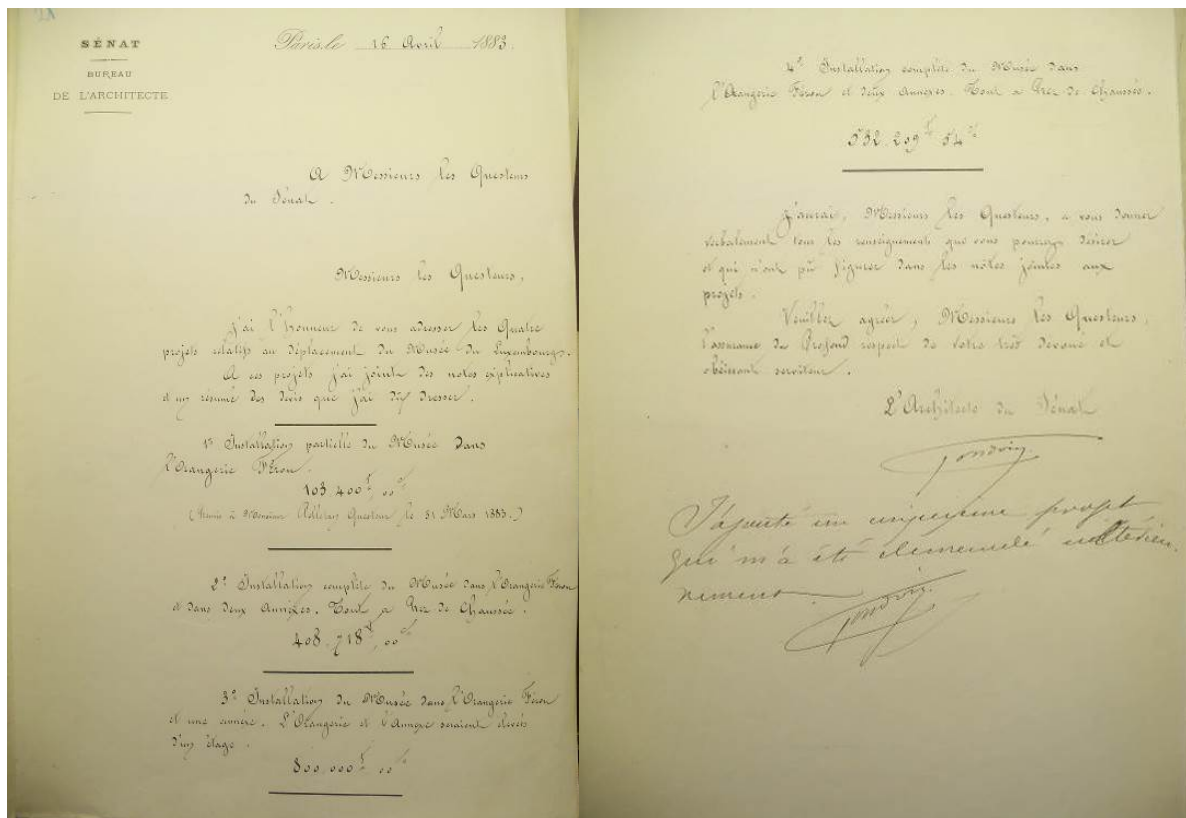 SÉNAT
BUREAU
DE L'ARCHITECTE
Paris, le 16 Avril 1883.
A Messieurs les Questeurs
du Sénat.
Messieurs les Questeurs,
J'ai l'honneur de vous adresser les Quatre
projets relatifs au déplacement du Musée du Luxembourg.
A ces projets j'ai joint des notes explicatives
et un résumé des devis que j'ai dû dresser.
1º Installation partielle du Musée dans
l'Orangerie Féron.
103.400f,00c
(Remis à Monsieur Pelletan Questeur le 31 Mars 1883.)
2º Installation complète du Musée dans l'Orangerie Féron
et dans deux Annexes. Tout a Rez de Chaussée.
408.718f,00c
3º Installation du Musée dans l'Orangerie Féron
et une annexe. L'Orangerie et l'Annexe seraient élevés
d'un étage.
800.000f,00c
4º Installation complète du Musée dans
l'Orangerie Féron et deux Annexes. Tout a Rez de Chaussée.
532.209f,54c
J'aurai, Messieurs les Questeurs, a vous donner
verbalement tous les renseignements que vous pourrez désirer
et qui n'ont pû figurer dans les nôtes jointes aux
projets.
Veuillez agréer, Messieurs les Questeurs,
l'assurance du Profond respect de Votre très dévoué et
obéissant serviteur.
L'Architecte du Sénat
Gondoin
J'ajoute un cinquième projet
qui m'a été demandé ultérieu-
rement
Gondoin